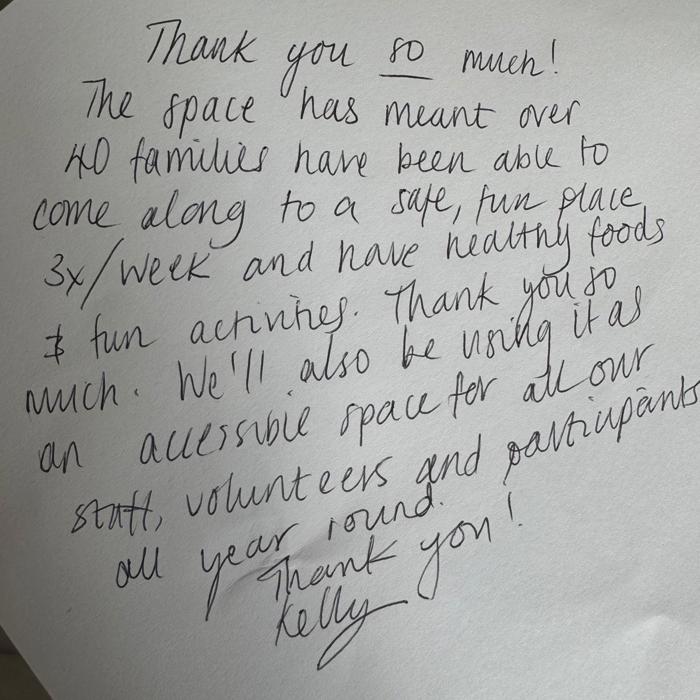 Thank you so much!
The space has meant over
40 families have been able to
come along to a safe, fun place
3x/week and have healthy foods
& fun activities. Thank you so
much. We'll also be using it as
an accessible space for all our
staff, volunteers and participants
all year round.
Thank you!
Kelly